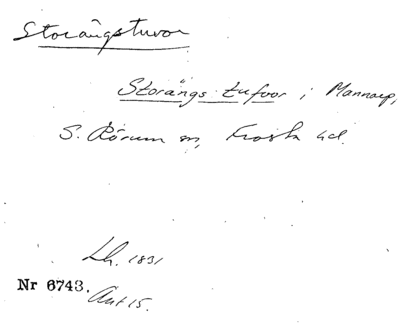 Storängstuvor
Storängs tufvor i Mannarp,
S. Rörum sn, Frosta hd.
Lh. 1831
Nr 6743. Akt 15.